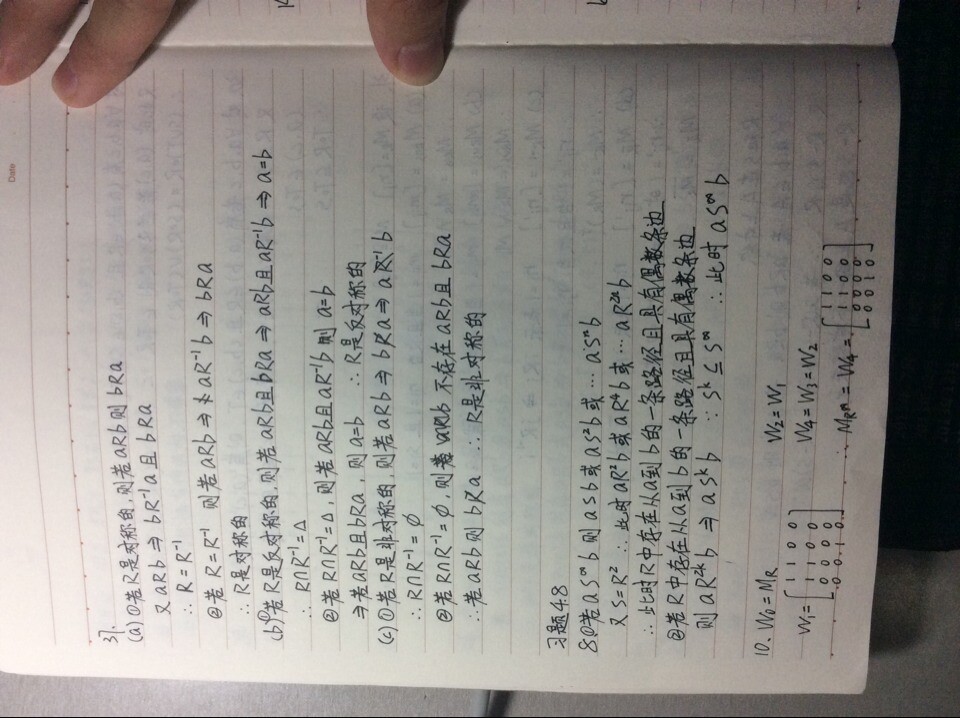 Date
37.
(a) ①若R是对称的,则若aRb则 bRa
又 aRb ⇒ bR⁻¹a 且 bRa
∴ R = R⁻¹
②若 R = R⁻¹ 则若aRb ⇒ aR⁻¹b ⇒ bRa
∴ R是对称的
(b) ①若R是反对称的,则若 aRb且bRa ⇒ aRb且aR⁻¹b ⇒ a=b
∴ R∩R⁻¹=Δ
②若R∩R⁻¹=Δ,则若aRb且aR⁻¹b 则 a=b
⇒若aRb且bRa,则a=b ∴R是反对称的
(c) ①若R是非对称的,则若aRb ⇒ bR̸a ⇒ aR̸⁻¹b
∴ R∩R⁻¹ = ∅
②若R∩R⁻¹=∅,则 不存在 aRb且 bRa
∴若aRb则 bR̸a ∴ R是非对称的
习题4.8
8.①若 aS^∞b 则 aSb或aS²b或 … aSⁿb
又 S=R² ∴ 此时aR²b或 aR⁴b或 … aR²ⁿb
∴此时R中存在从a到b的一条路径且具有偶数条边
②若R中存在从a到b的一条路径且具有偶数条边
则 aR²ᵏb ⇒ aSᵏb ∵ Sᵏ ⊆ S^∞ ∴ 此时 aS^∞b
10. W₀ = M_R
W₂ = W₁
W₁ = [1 1 0 0
1 1 0 0
0 0 0 0
0 0 1 0]
W₄ = W₃ = W₂
∴ M_R^∞ = W₄ = [1 1 0 0
1 1 0 0
0 0 0 0
0 0 1 0]